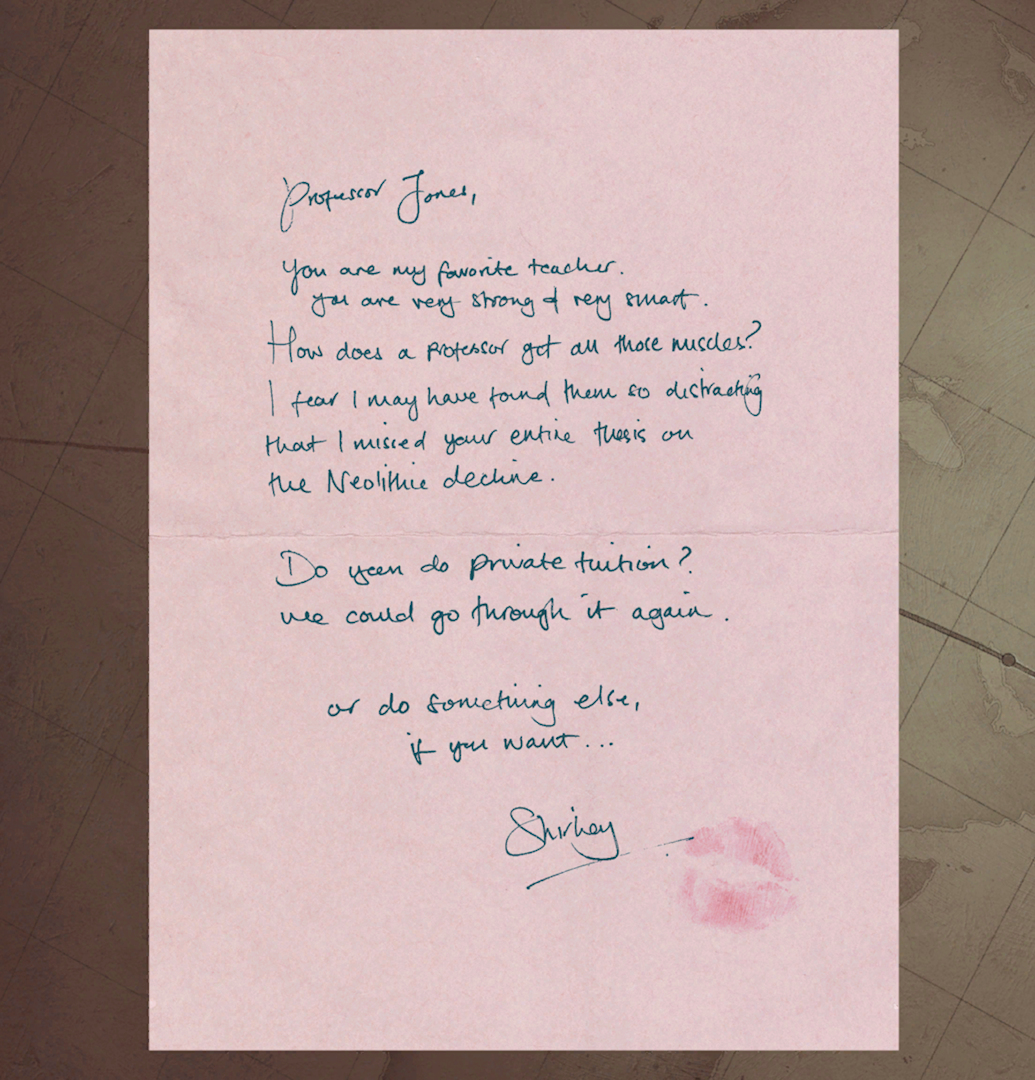 Professor Jones,
You are my favorite teacher.
you are very strong & very smart.
How does a professor get all those muscles?
I fear I may have found them so distracting
that I missed your entire thesis on
the Neolithic decline.
Do you do private tuition?
we could go through it again.
or do something else,
if you want...
Shirley